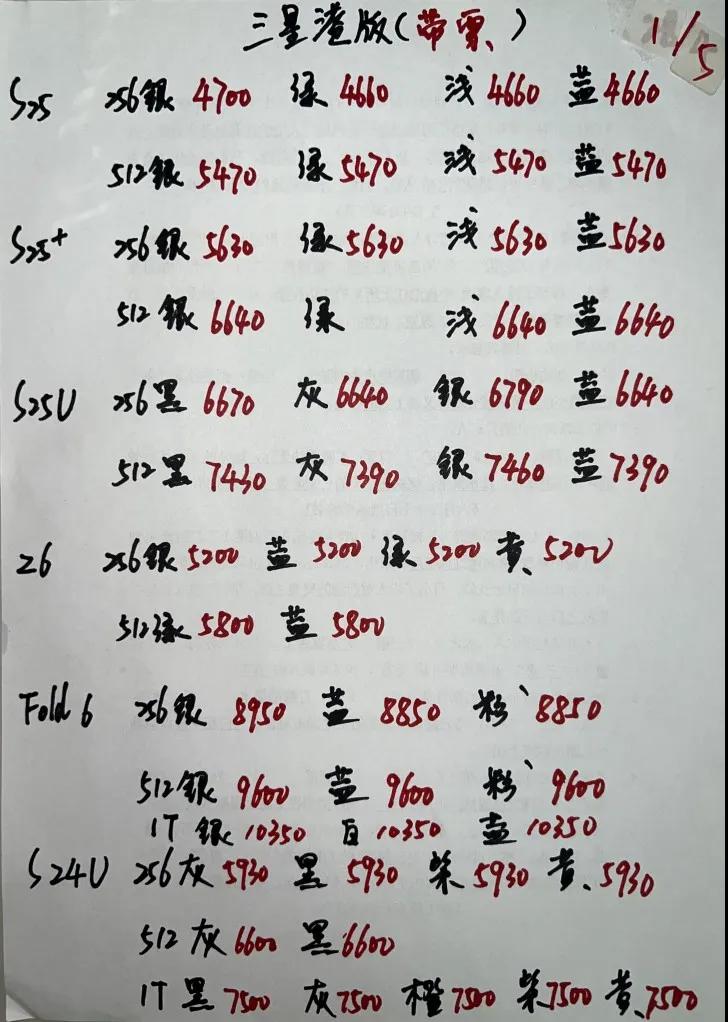 三星港版(带票) 1/5
S25 256銀 4700 绿 4660 浅 4660 蓝 4660
512銀 5470 绿 5470 浅 5470 蓝 5470
S25+ 256銀 5630 绿 5630 浅 5630 蓝 5630
512銀 6640 绿 浅 6640 蓝 6640
S25U 256黑 6670 灰 6640 銀 6790 蓝 6640
512黑 7430 灰 7390 銀 7460 蓝 7390
Z6 256銀 5200 蓝 5200 绿 5200 黄 5200
512绿 5800 蓝 5800
Fold 6 256銀 8950 蓝 8850 粉 8850
512銀 9600 蓝 9600 粉 9600
1T 銀 10350 白 10350 蓝 10350
S24U 256灰 5930 黑 5930 紫 5930 黄 5930
512灰 6600 黑 6600
1T 黑 7500 灰 7500 橙 7500 紫 7500 黄 7500